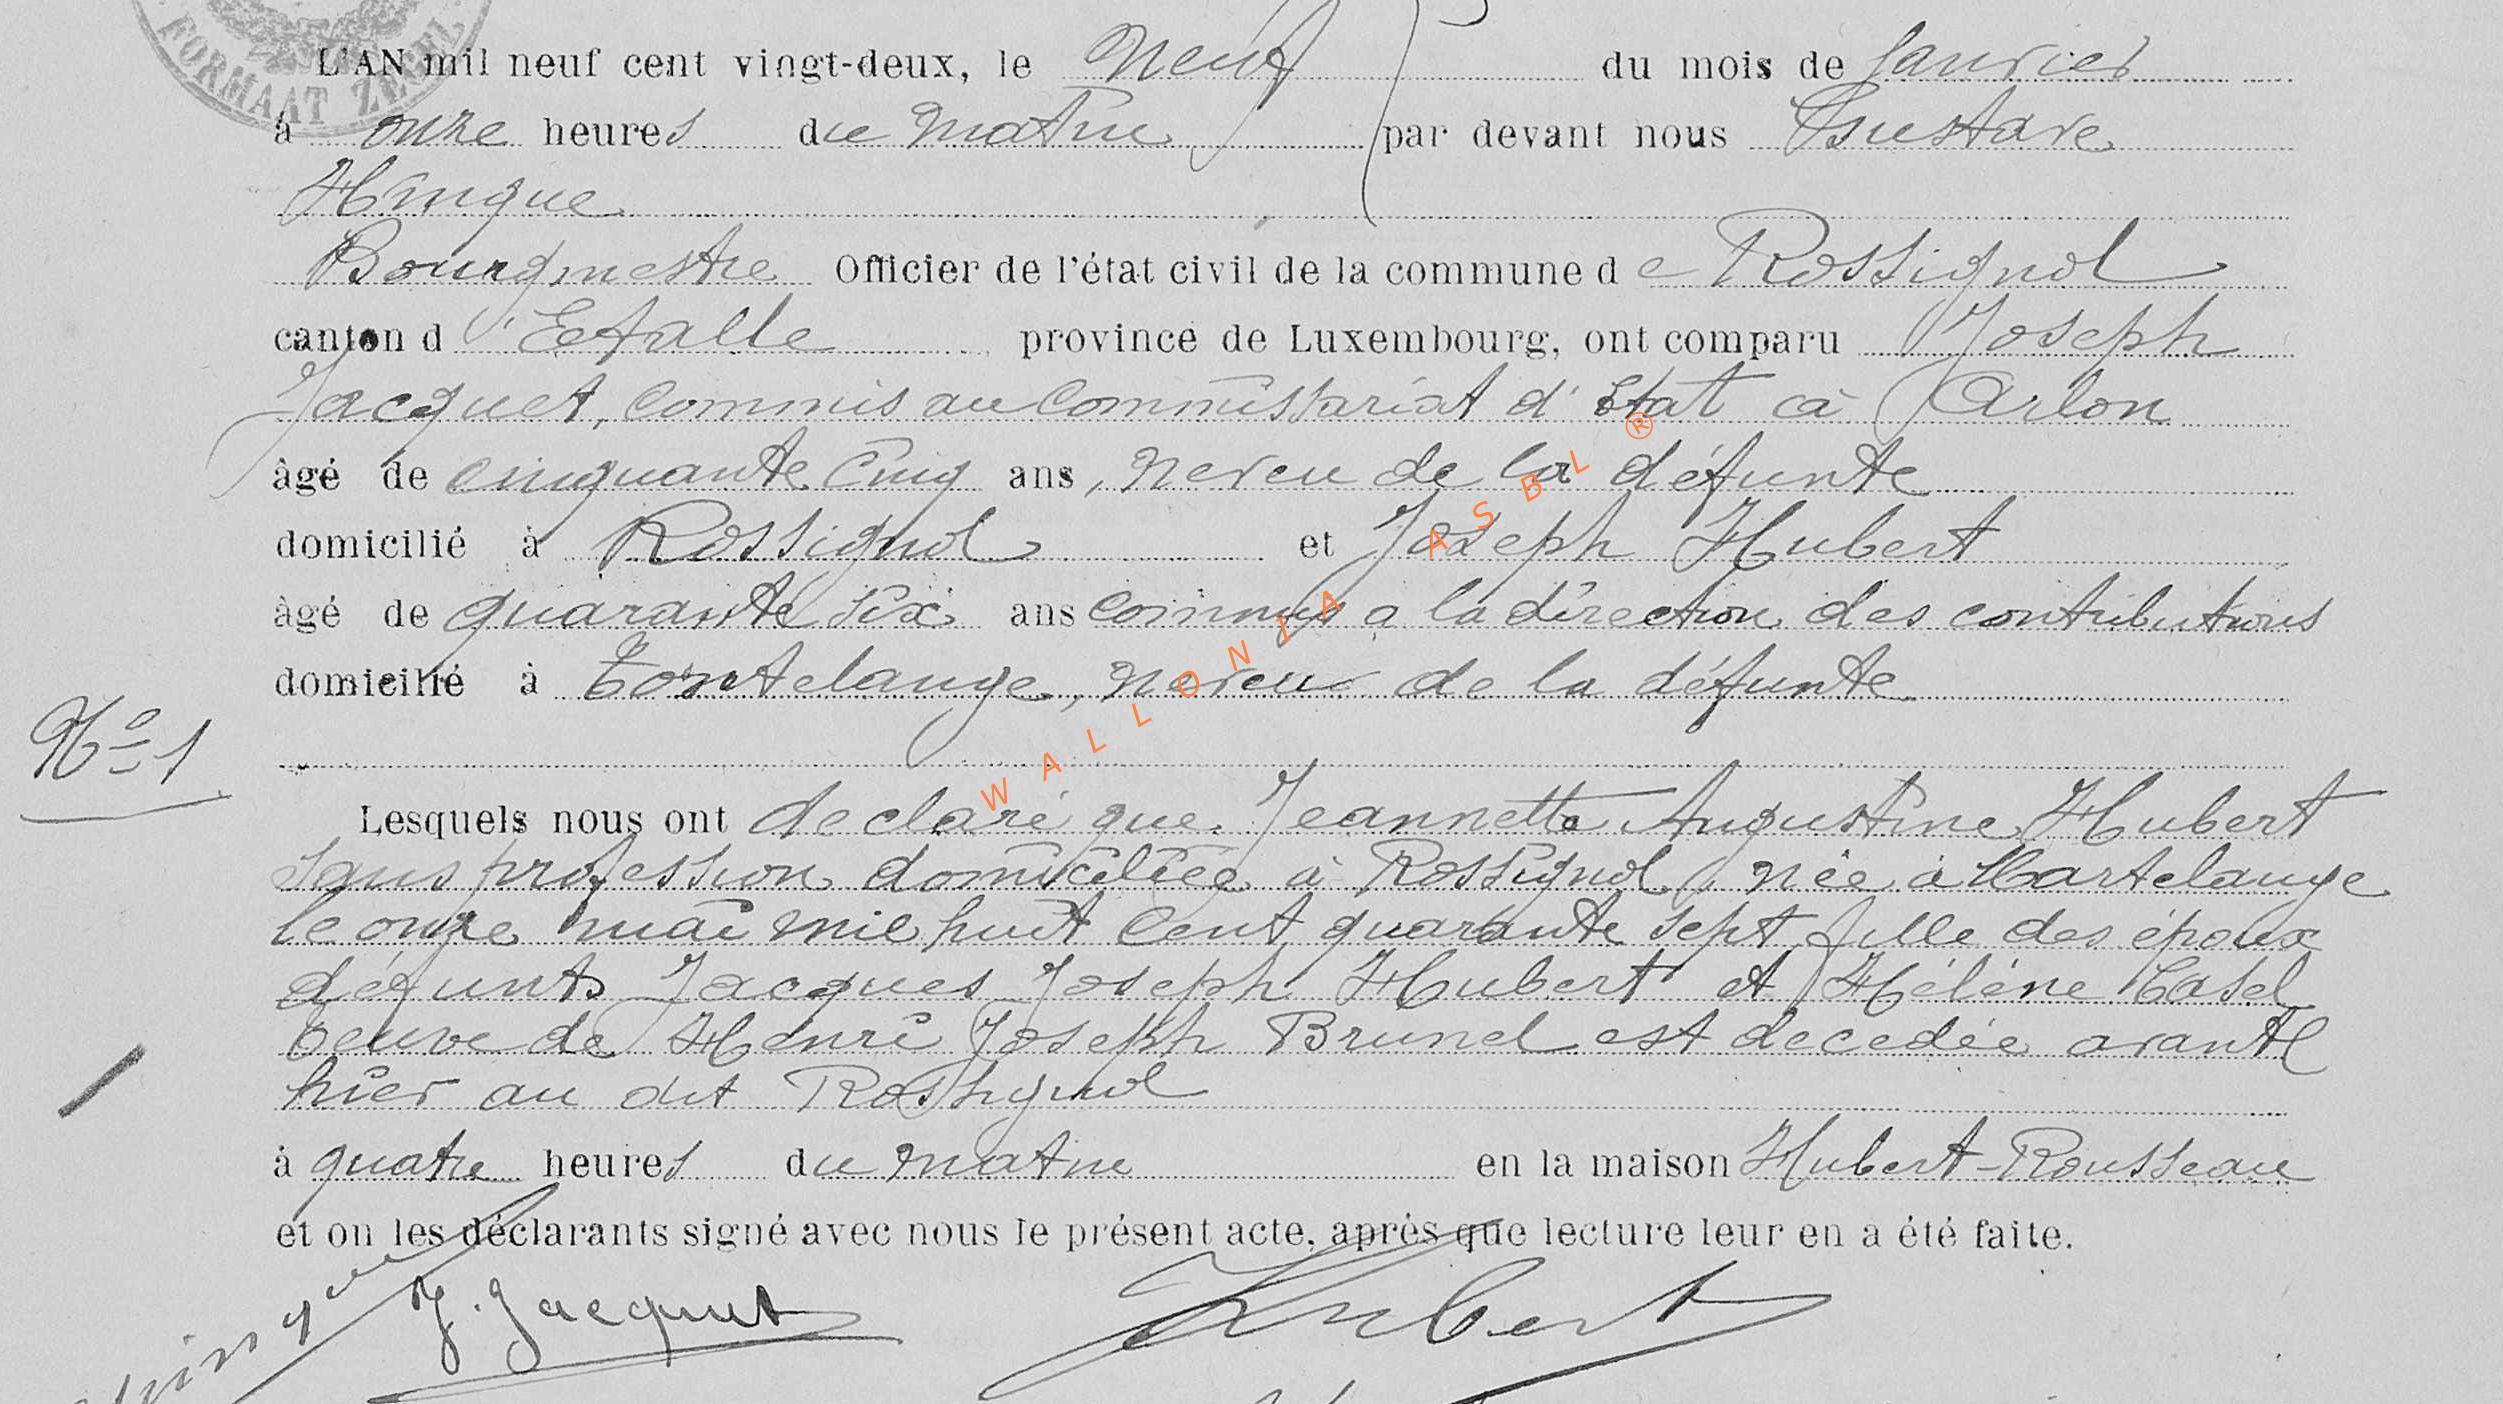 FORMAAT ZEGEL
L'AN mil neuf cent vingt-deux, le neuf du mois de Janvier
à onze heures du matin par devant nous Gustave
Hinque
Bourgmestre Officier de l'état civil de la commune de Rossignol
canton d'Etalle province de Luxembourg, ont comparu Joseph
Jacquet, commis au Commissariat d'Etat à Arlon
âgé de cinquante cinq ans, neveu de la défunte
domicilié à Rossignol et Joseph Hubert
âgé de quarante six ans commis a la direction des contributions
domicilié à Tontelange, neveu de la défunte
No 1
Lesquels nous ont declaré que Jeannette Augustine Hubert
sans profession domiciliée à Rossignol, née à Martelange
le onze mai mil huit cent quarante sept fille des époux
défunts Jacques Joseph Hubert et Hélène Casel
veuve de Henri Joseph Brunel est decedée avant
hier au dit Rossignol
à quatre heures du matin en la maison Hubert-Rousseau
et on les déclarants signé avec nous le présent acte, après que lecture leur en a été faite.
J. Jacquet Hubert
WALLONIA ASBL ®